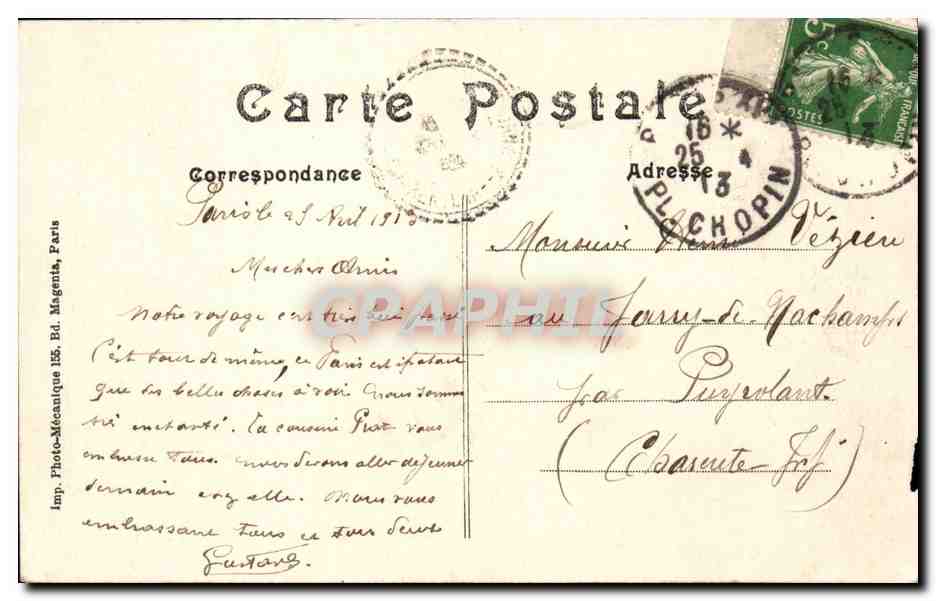 Carte Postale
Correspondance
Adresse
Imp. Photo-Mécanique 155, Bd. Magenta, Paris
5c
POSTES
FRANÇAISE
16 *
25 4
13
PL. CHOPIN
16 *
25
13
CPAPHIL
Paris le 25 Avril 1913
Mes chers Amis
Notre voyage c'est très bien passé
C'est tout de même, ce Paris est épatant
que des belles choses à voir nous sommes
très enchanté. La cousine Prat vous
embrasse tous. nous devons aller déjeuner
demain chez elle. Nous vous
embrassant tous
Gustave
Monsieur Vézien
au Jarry-de-Machamps
par Puyrolant
(Charente-Inf)